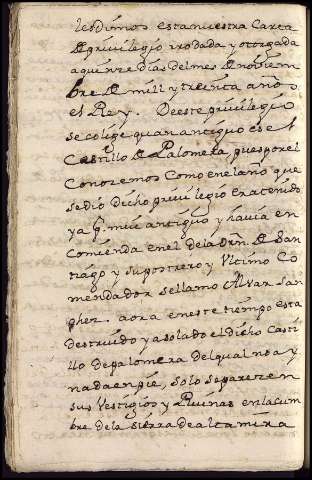 les dimos esta nuestra Carta
de privilegio rrodada y otorgada
a quinze dias del mes de noviem
bre de mill y treinta años
el Rey. De este privilegio
se colige quan antiguo es el
Castillo de Palomera, pues por el
Conozemos Como en el año que
se dio dicho privilegio era tenido
ya por mui antiguo y havia en
comienda en el de la Orn. de San
tiago y su postrero y Vltimo Co
mendador se llamo Alvar San
chez. aora en este tiempo esta
destruido y asolado el dicho Casti
llo de palomera del qual no a y
nada en pie, solo se parezem
sus Vestigios y Ruinas en la cum
bre de la sierra de altamira